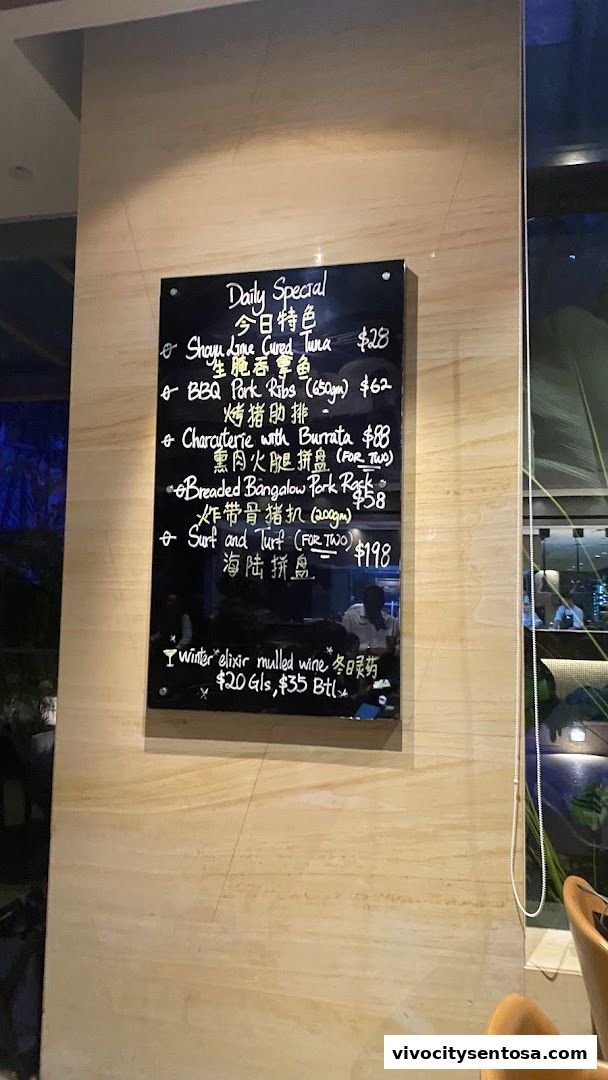 Daily Special
今日特色
Shoyu Lime Cured Tuna $28
生腌吞拿鱼
BBQ Pork Ribs (650gm) $62
烤猪肋排
Charcuterie with Burrata $88
熏肉火腿拼盘 (FOR TWO)
Breaded Bangalow Pork Rack
$58
炸带骨猪扒 (200gm)
Surf and Turf (FOR TWO) $198
海陆拼盘
winter elixir mulled wine 冬日灵药
$20 Gls, $35 Btl
vivocitysentosa.com